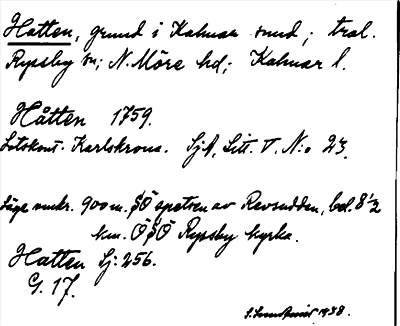 Hatten, grund i Kalmar sund; tral.
Ryssby sn; N. Möre hd; Kalmar l.
Håtten 1759.
Lotskont. Karlskrona. SjA, Litt. V. N:o 23.
Läge omkr. 900 m. SÖ spetsen av Revsudden, bel. 8 1/2
km. ÖSÖ Ryssby kyrka.
Hatten Sj: 256.
G. 17.
1938.